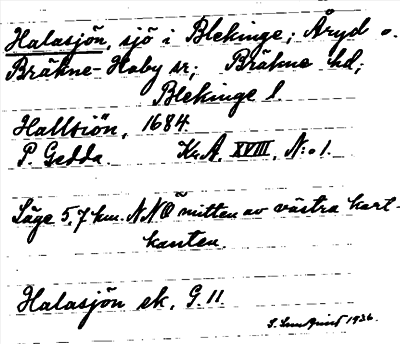 Halasjön, sjö i Blekinge; Åryd o.
Bräkne-Hoby sr; Bräkne hd;
Blekinge l.
Halltiön, 1684.
P. Gedda. Kr.A. XVIII, N:o 1.
Läge 5,7 km. NNO mitten av västra kart-
kanten.
Halasjön ek. G. 11.
S. Lundquist 1936.